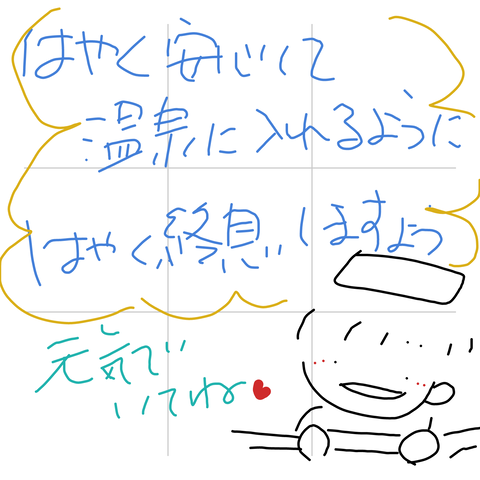 はやく安心して
温泉に入れるように
はやく終息しますよう
元気で
いてね